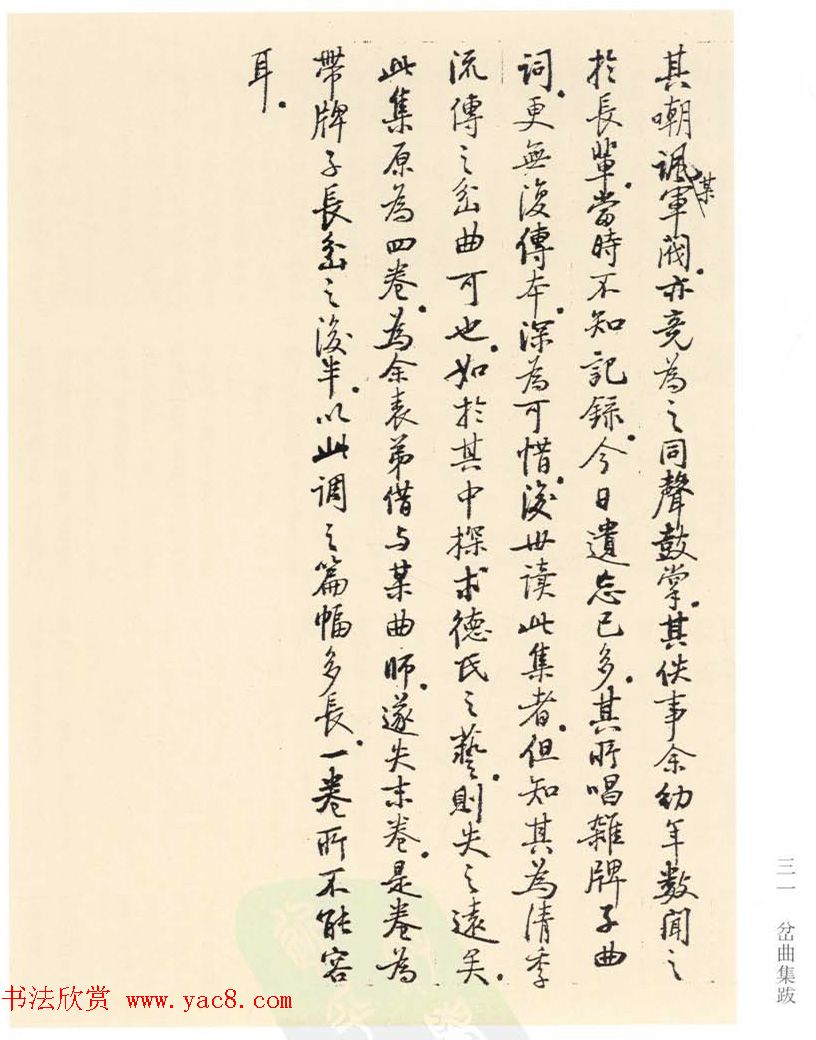 其嘲諷某軍閥。亦竟為之同聲鼓掌。其佚事余幼年數聞之
於長輩。當時不知記錄。今日遺忘已多。其所唱雜牌子曲
詞。更無復傳本。深為可惜。後世读此集者。但知其為清季
流傳之岔曲可也。如於其中探求德氏之藝。則失之遠矣。
此集原為四卷。為余表弟借与某曲師。遂失末卷。是卷為
帶牌子長岔之後半。以此调之篇幅多長。一卷所不能容
耳。
三一 岔曲集跋
书法欣赏 www.yac8.com